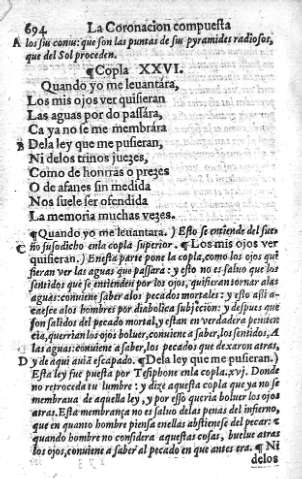 694 La Coronacion compuesta
A los sus conus: que son las puntas de sus pyramides radiosos,
que del Sol proceden.
¶Copla XXVI.
Quando yo me leuantára,
Los mis ojos ver quisieran
Las aguas por do passára,
Ca ya no se me membrára
B Dela ley que me pusieran,
Ni delos trinos juezes,
Como de honrras o prezes
O de afanes sin medida
Nos suele ser ofendida
La memoria muchas vezes.
¶Quando yo me leuantara.) Esto se entiende del sue
C ño susodicho enla copla superior. ¶Los mis ojos ver
quisieran.) Enesta parte pone la copla, como los ojos qui
sieran ver las aguas que passara: y esto no es saluo que los
sentidos que se entienden por los ojos, quisieran tornar alas
aguas: conuiene saber alos pecados mortales: y esto assi a-
caesce alos hombres por diabolica subjecion: y despues que
son salidos del pecado mortal, y estan en verdadera peniten
cia, querrian los ojos boluer, conuiene a saber, los sentidos, A
las aguas: conuiene a saber, los pecados que dexaron atras,
D y de aqui auiã escapado. ¶Dela ley que me pusieran.)
Esta ley fue puesta por Tesiphone enla copla.xvj. Donde
no retroceda tu lumbre: y dize aquesta copla que ya no se
membraua de aquella ley, y por esso queria boluer los ojos
atras. Esta membrança no es saluo delas penas del infierno,
que en quanto hombre piensa enellas abstienese del pecar:
quando hombre no considera aquestas cosas, buelue atras
los ojos, conuiene a saber al pecado en que antes era. ¶Ni
delos